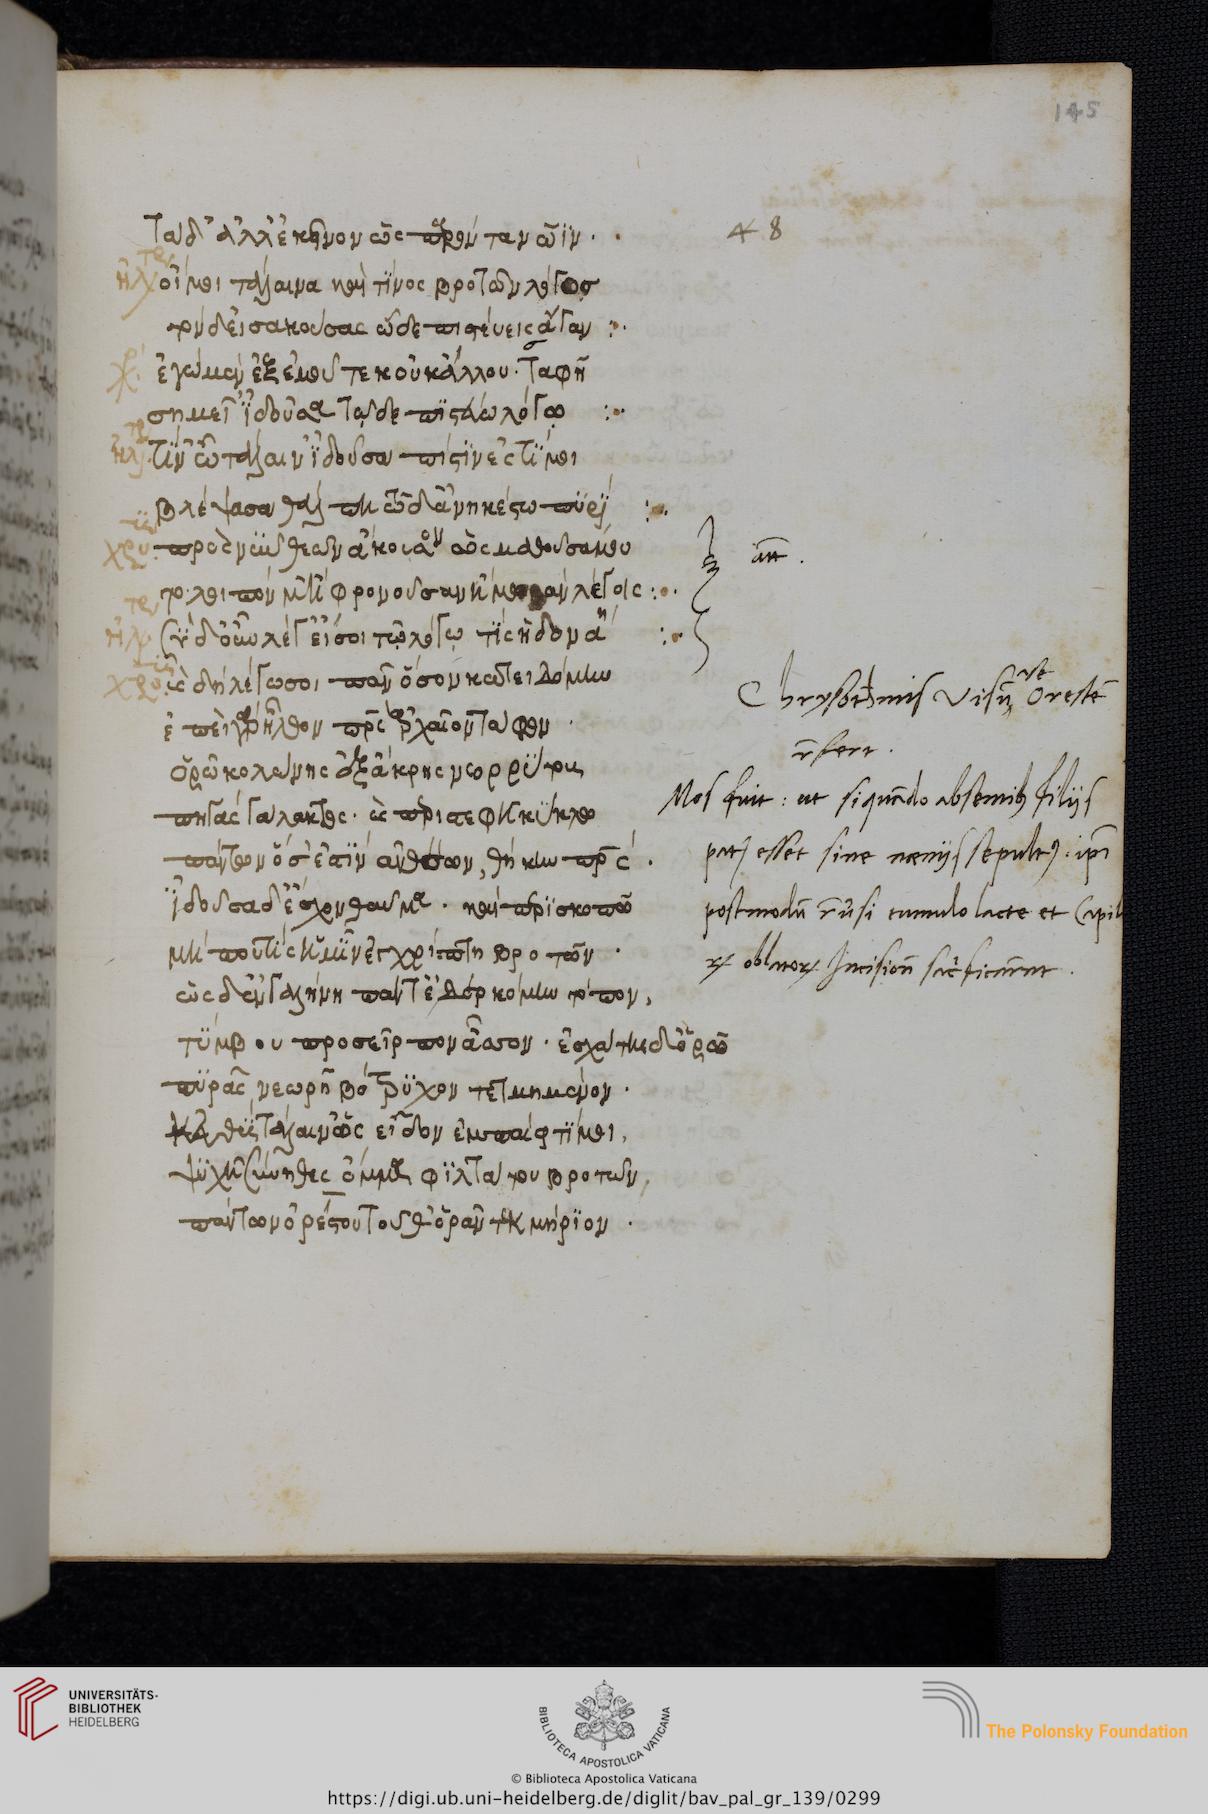 145
48
τάδ' ἀλλ' ἐκεῖνον ὡς παρόντα νῶιν.
ἠλέκτρ
οἴμοι τάλαινα καὶ τίνος βροτῶν λόγον
τόνδ' εἰσακούσασ ὧδε πιστεύεις ἄγαν :·
χρ
ἐγὼ μὲν ἐξ ἐμοῦ τε κοὐκ ἄλλου. σαφῆ
σημεῖ' ἰδοῦσα τῷδε πιστεύω λόγῳ :·
ἠλέκτρ
τίν' ὦ τάλαιν' ἰδοῦσα πίστιν ἐς τί μοι
βλέψασα θάλπῃ τῷδ' ἀνηκέστῳ πυρί :·
χρυ
πρός νυν θεῶν ἄκουσον ὡς μαθοῦσά μου
τὸ λοιπὸν ἢ φρονοῦσαν ἢ μωρὰν λέγοις :·
ἠλ
σὺ δ' οὖν λέγ' εἴ σοι τῷ λόγῳ τίς ἡδονά :·
χρυσ
καὶ δὴ λέγω σοι πᾶν ὅσον κατειδόμην
ἐπεὶ γὰρ ἦλθον πρς ἀρχαῖον τάφον ·
ὁρῶ κολώνης ἐξ ἄκρης νεορρύτους
πηγὰς γάλακτος. καὶ περιστεφῆ κύκλῳ
πάντων ὅσ' ἐστὶν ἀνθέων, θήκην πρς .
ἰδοῦσα δ' ἔσχον θαῦμα. καὶ περισκοπῶ
μή πού τίς ἡμῖν ἐγχρίπτῃ βροτῶν ·
ὡς δ' ἐν γαλήνῃ πάντ' ἐδερκόμην τόπον,
τύμβου προσεῖρπον ἆσσον. ἐσχάτης δ' ὁρῶ
πυρᾶς νεωρῆ βόστρυχον τετμημένον.
κεὐθὺς τάλαιν' ὡς εἶδον ἐμπαίει τί μοι,
ψυχῇ σύνηθες ὄμμα φιλτάτου βροτῶν,
πάντων ὀρέστου τοῦθ' ὁρᾶν τεκμήριον.
añ .
Chrysothemis Visum Orestem
refert.
Mos fuit : ut si quando absentibus filiis
pater esset sine nænijs sepultus. ipsi
postmodum reversi tumulo lacte et Capil
rum oblatorum Incisione sacrificarent .
UNIVERSITÄTS-
BIBLIOTHEK
HEIDELBERG
BIBLIOTECA APOSTOLICA VATICANA
The Polonsky Foundation
© Biblioteca Apostolica Vaticana
https://digi.ub.uni-heidelberg.de/diglit/bav_pal_gr_139/0299